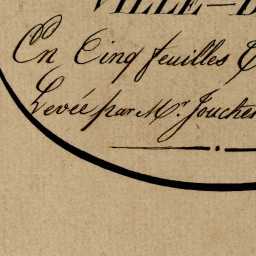 VILLE-
En Cinq feuilles
Levée par Mr. Jouche